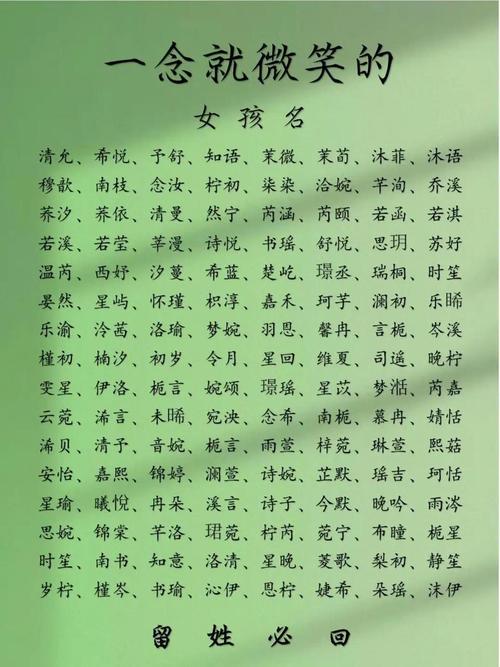 一念就微笑的
女孩名
清允、希悦、予舒、知语、茉微、茉荀、沐菲、沐语
穆歆、南枝、念汝、柠初、柒柒、洽婉、芊洵、乔溪
荞汐、荞依、清曼、然宁、芮涵、芮颐、若函、若淇
若溪、若莹、莘漫、诗悦、书瑶、舒悦、思玥、苏好
温芮、西妤、汐蔓、希蓝、楚屹、璟丞、瑞桐、时笙
晏然、星屿、怀瑾、枳淳、嘉禾、珂芋、澜初、乐晞
乐渝、泠茜、洛瑜、梦婉、羽恩、馨冉、言栀、岑溪
槿初、楠汐、初岁、令月、星回、维夏、司遥、晚柠
雯星、伊洛、栀言、婉颂、璟瑶、星苡、梦湉、芮嘉
云菀、浠言、未晞、宛泱、念希、南栀、慕冉、婧恬
浠贝、清予、音婉、栀言、雨萱、梓菀、琳萱、熙菇
安怡、嘉熙、锦婷、澜萱、诗婉、芷默、瑶吉、珂恬
星瑜、曦悅、冉朵、溪言、诗子、今默、晚吟、雨涔
思婉、锦棠、芊洛、珺菀、柠芮、菀宁、布瞳、栀星
时笙、南书、知意、洛清、星晚、菱歌、梨初、静笙
岁柠、槿岑、书瑜、沁伊、恩柠、婕希、朵瑶、沫伊
留姓必回